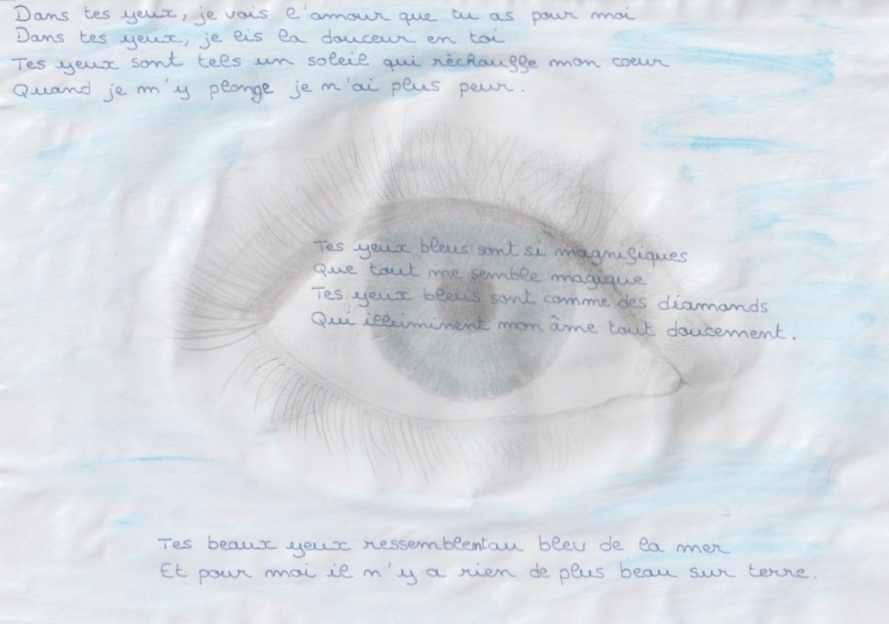 Dans tes yeux, je vois l'amour que tu as pour moi
Dans tes yeux, je lis la douceur en toi
Tes yeux sont tels un soleil qui réchauffe mon coeur
Quand je m'y plonge je n'ai plus peur.
Tes yeux bleus sont si magnifiques
Que tout me semble magique
Tes yeux bleus sont comme des diamands
Qui illuminent mon âme tout doucement.
Tes beaux yeux ressemblent au bleu de la mer
Et pour moi il n'y a rien de plus beau sur terre.